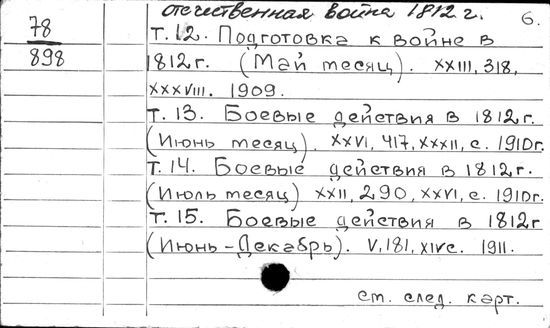 отечественная война 1812 г. 6.
78
898
т. 12. Подготовка к войне в
1812 г. (Май месяц). XXIII, 318,
XXXVIII. 1909.
т. 13. Боевые действия в 1812 г.
(Июнь месяц). XXVI, 417, XXXII, с. 1910 г.
т. 14. Боевые действия в 1812 г.
(Июль месяц) XXII, 290, XXVI, с. 1910 г.
т. 15. Боевые действия в 1812 г
(Июнь-Декабрь). V, 181, XIV с. 1911.
ст. след. карт.